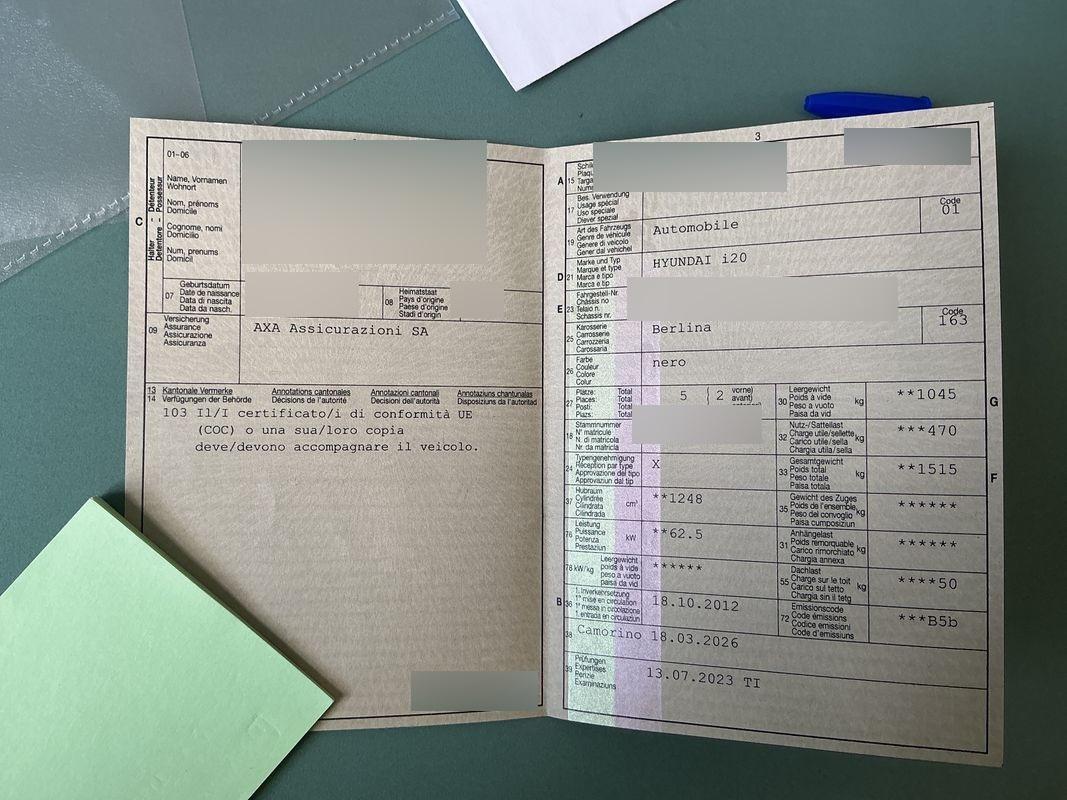 01–06
Name, Vornamen
Wohnort
Nom, prénoms
Domicile
Cognome, nomi
Domicilio
Num, prenums
Domicil
C
Halter – Détenteur
Detentore – Possessur
07
Geburtsdatum
Date de naissance
Data di nascita
Data da nasch.
08
Heimatstaat
Pays d'origine
Paese d'origine
Stadi d'origin
09
Versicherung
Assurance
Assicurazione
Assicuranza
AXA Assicurazioni SA
13 Kantonale Vermerke Annotations cantonales Annotazioni cantonali Annotaziuns chantunalas
14 Verfügungen der Behörde Décisions de l'autorité Decisioni dell'autorità Disposiziuns da l'autoritad
103 Il/I certificato/i di conformità UE
(COC) o una sua/loro copia
deve/devono accompagnare il veicolo.
3
A
15
17
Bes. Verwendung
Usage spécial
Uso speciale
Diever spezial
19
Art des Fahrzeugs
Genre de véhicule
Genere di veicolo
Gener dal vehichel
Automobile
Code
01
D
21
Marke und Typ
Marque et type
Marca e tipo
Marca e tip
HYUNDAI i20
E
23
Fahrgestell-Nr.
Châssis no
Telaio n.
Schassis nr.
25
Karosserie
Carrosserie
Carrozzeria
Carossaria
Berlina
Code
163
26
Farbe
Couleur
Colore
Colur
nero
27
Plätze: Total
Places: Total
Posti: Total
Plazs: Total
5
2
vorne)
avant)
30
Leergewicht
Poids à vide
Peso a vuoto
Paisa da vid
kg
**1045
G
18
Stammnummer
N° matricule
N. di matricola
Nr. da matricla
32
Nutz-/Sattellast
Charge utile/sellette
Carico utile/sella
Chargia utila/sella
kg
***470
24
Typengenehmigung
Réception par type
Approvazione del tipo
Approvaziun dal tip
X
33
Gesamtgewicht
Poids total
Peso totale
Paisa totala
kg
**1515
F
37
Hubraum
Cylindrée
Cilindrata
Cilindrada
cm³
**1248
35
Gewicht des Zuges
Poids de l'ensemble
Peso del convoglio
Paisa cumposiziun
kg
******
76
Leistung
Puissance
Potenza
Prestaziun
kW
**62.5
31
Anhängelast
Poids remorquable
Carico rimorchiato
Chargia annexa
kg
******
78 kW/kg
Leergewicht
poids à vide
peso a vuoto
paisa da vid
******
55
Dachlast
Charge sur le toit
Carico sul tetto
Chargia sin il tetg
kg
****50
B
36
1. Inverkehrsetzung
1re mise en circulation
1a messa in circolazione
1. entrada en circulaziun
18.10.2012
72
Emissionscode
Code émissions
Codice emissioni
Code d'emissiuns
***B5b
38
Camorino 18.03.2026
39
Prüfungen
Expertises
Perizie
Examinaziuns
13.07.2023 TI